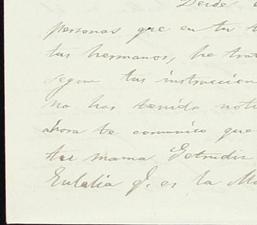 Desde
personas que en tu
tus hermanos, he tra
segun tus instruccion
no has tenido noti
ahora te comunico que
tu mama. Getrudis
Eulalia G. es la Ma